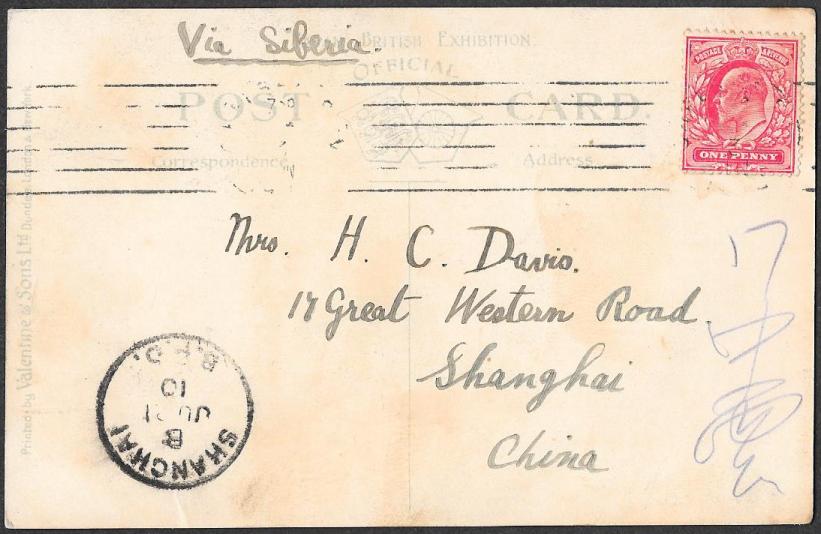 Via Siberia.
BRITISH EXHIBITION.
OFFICIAL
POST CARD.
Correspondence
Address
POSTAGE REVENUE
ONE PENNY
Mrs. H. C. Davis.
17 Great Western Road.
Shanghai
China
SHANGHAI
B
JU 21
10
B.P.O.
Printed by Valentine & Sons Ltd Dundee, London & New York.